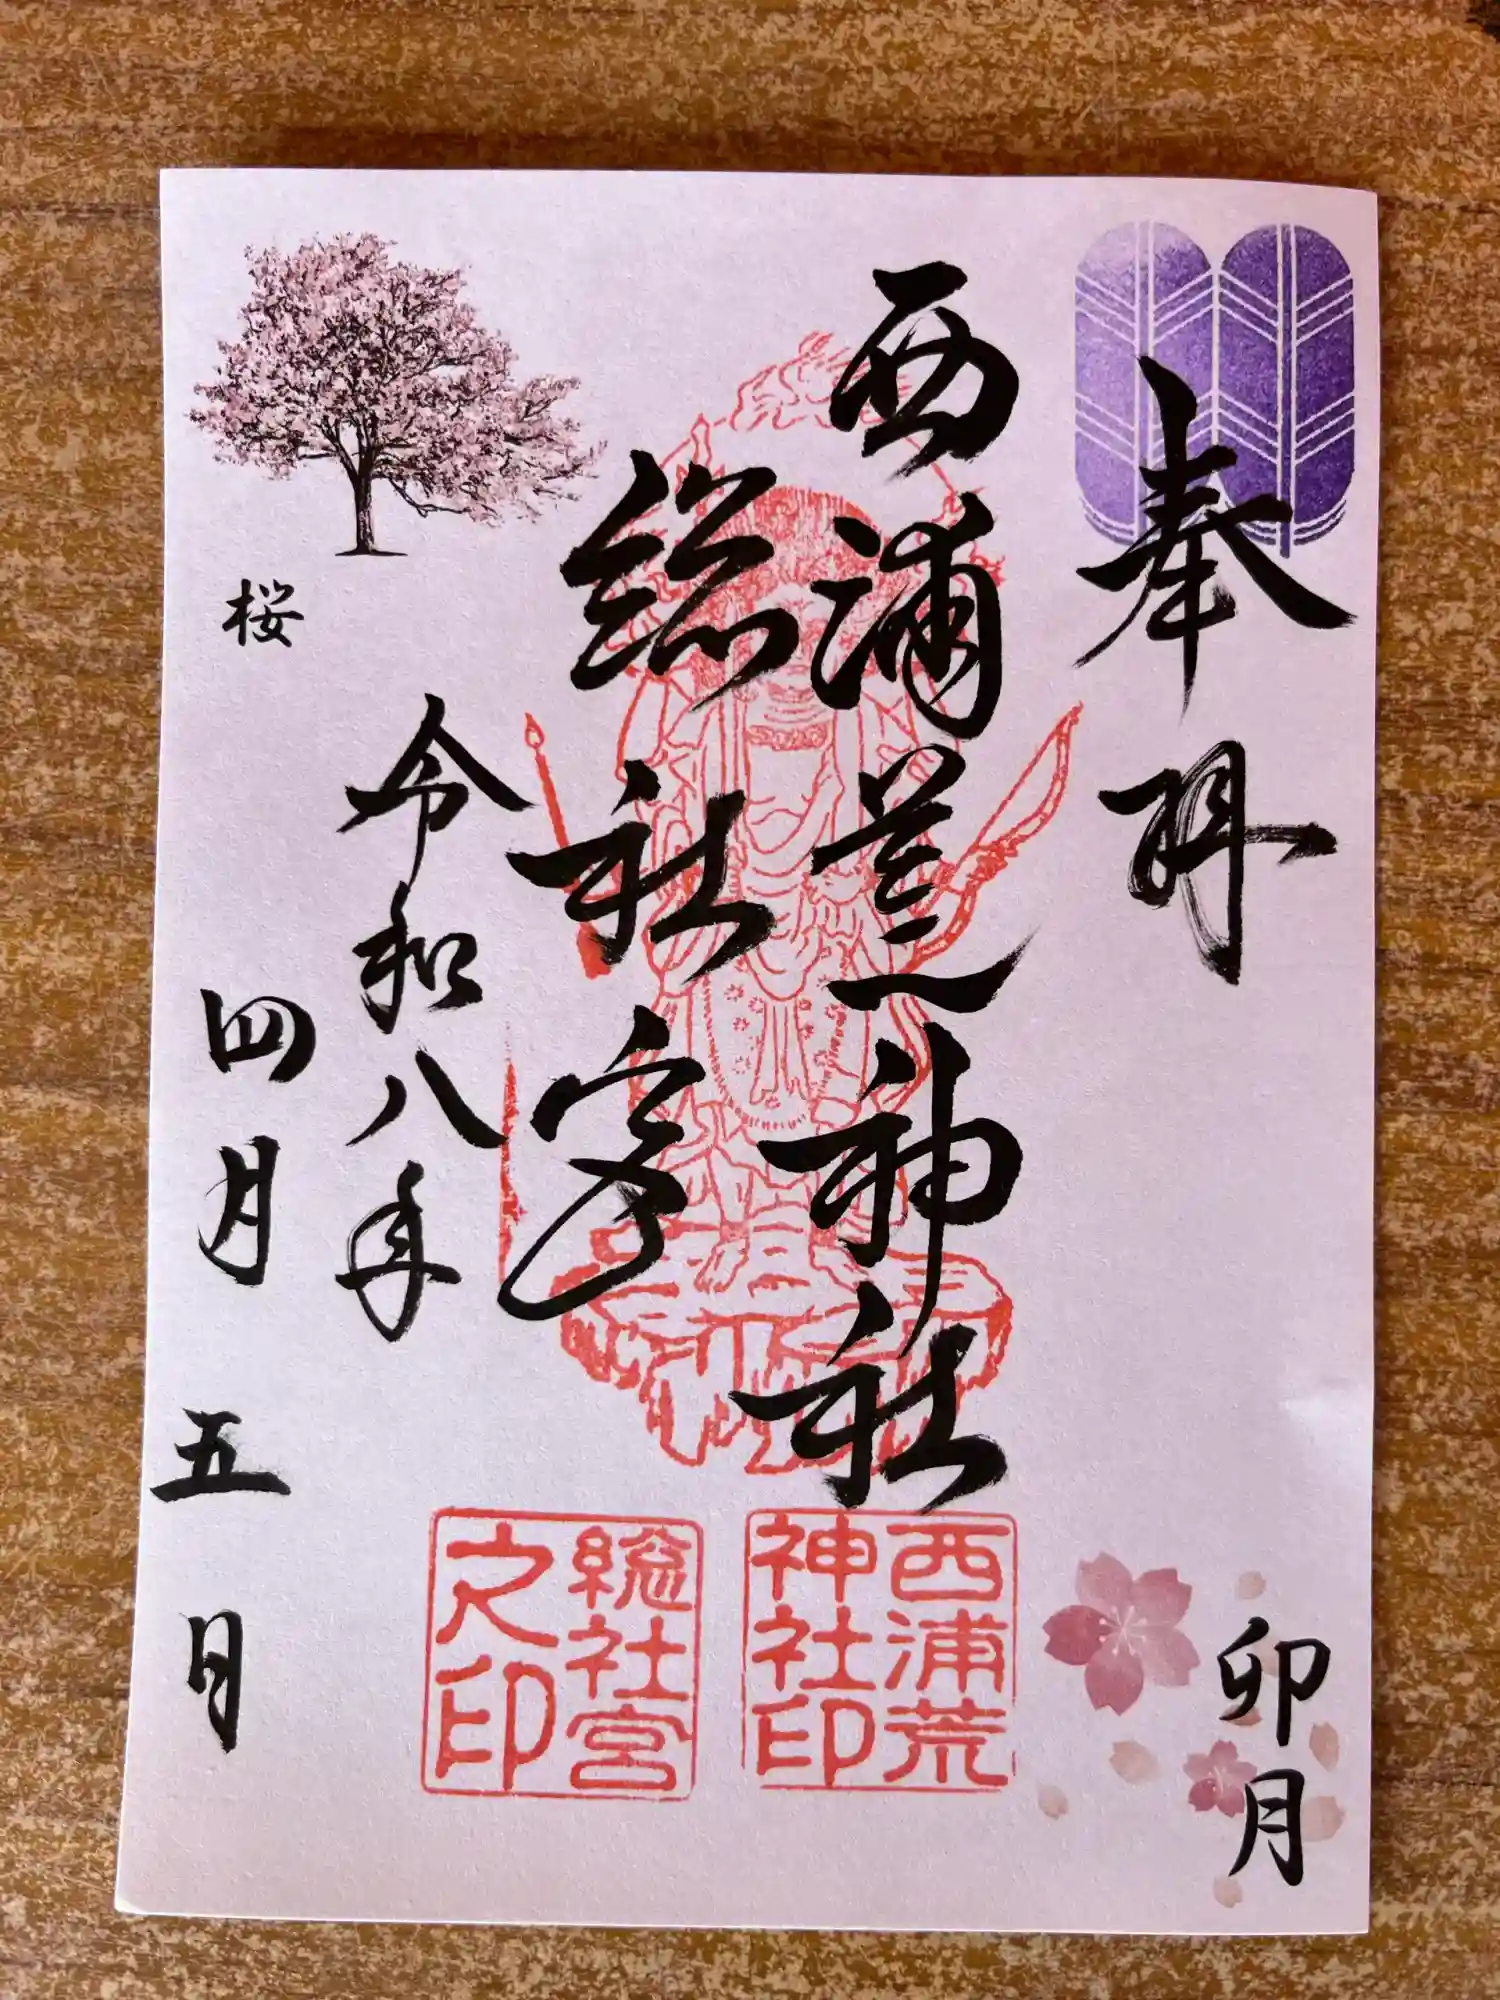 奉拝
卯月
西浦荒神社
西浦荒
神社印
総社宮
総社宮
之印
令和八年
四月五日
桜